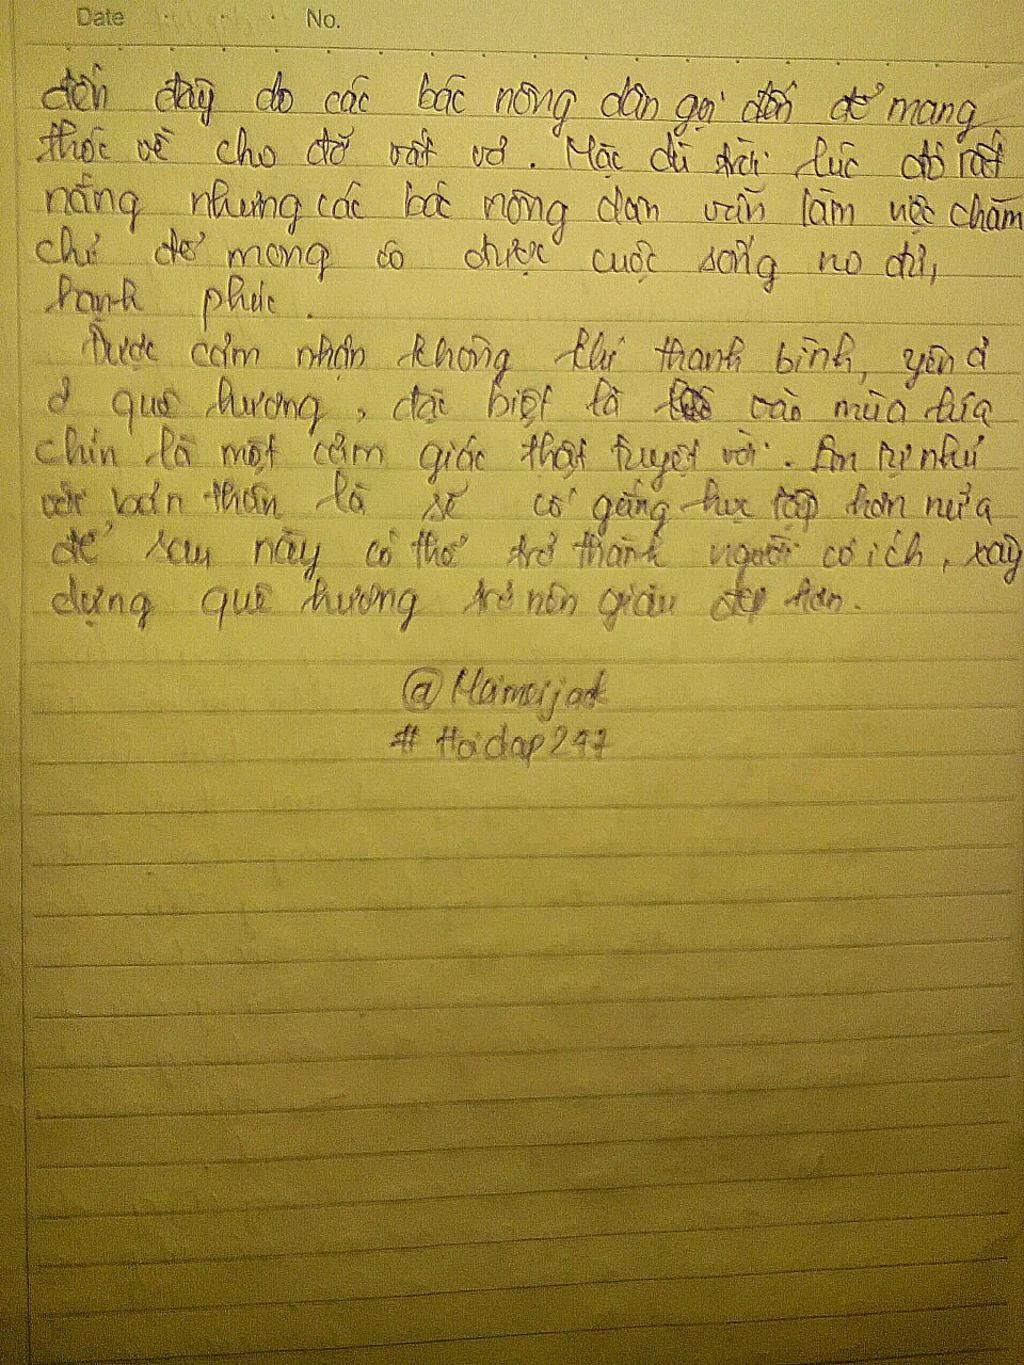 Date No.
đến đây do các bác nông dân gọi đến để mang
thóc về cho đỡ vất vả. Mặc dù trời lúc đó rất
nắng nhưng các bác nông dân vẫn làm việc chăm
chỉ để mong có được cuộc sống no đủ,
hạnh phúc.
Được cảm nhận không khí thanh bình, yên ả
ở quê hương, đặc biệt là vào mùa lúa
chín là một cảm giác thật tuyệt vời. Em tự nhủ
với bản thân là sẽ cố gắng học tập hơn nữa
để sau này có thể trở thành người có ích, xây
dựng quê hương trở nên giàu đẹp hơn.
@Maimaijack
# Hoidap247